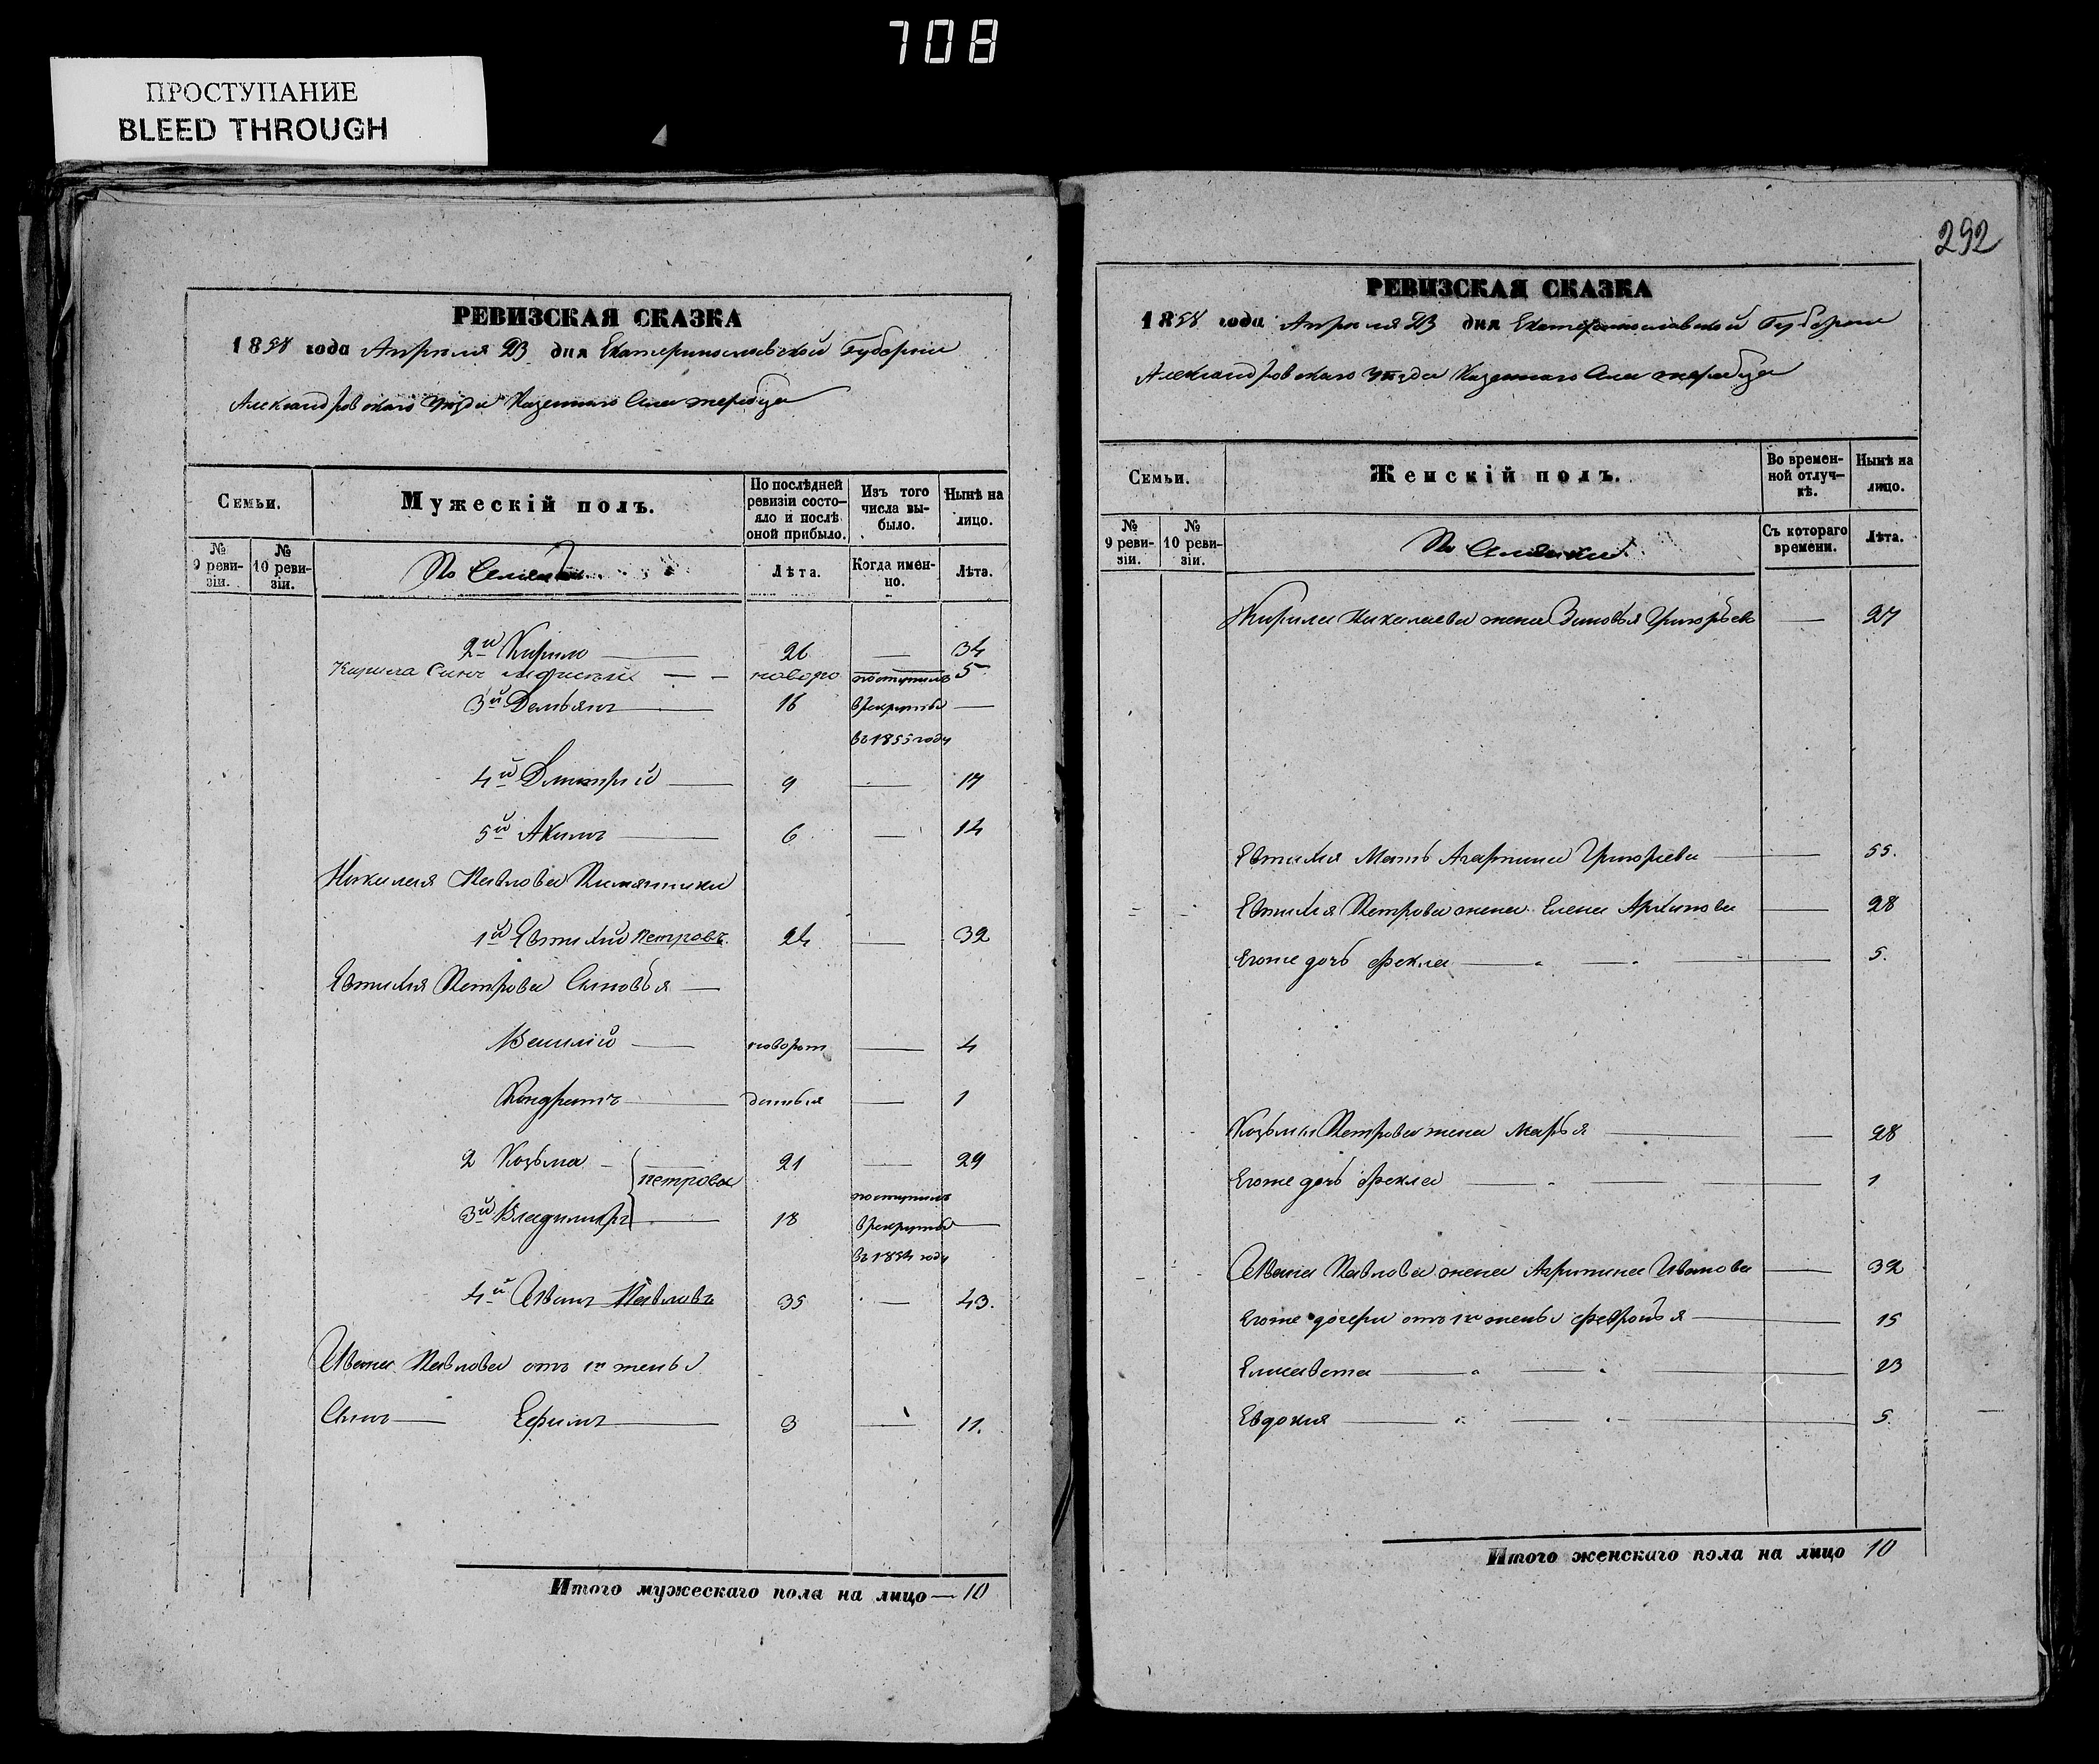 708
ПРОСТУПАНИЕ
BLEED THROUGH
РЕВИЗСКАЯ СКАЗКА
1858 года Апреля 23 дня Екатеринославской Губернии
Александровскаго уезда Казеннаго Села
Семьи.
Мужескій полъ.
По послѣдней ревизіи состояло и послѣ оной прибыло.
Изъ того числа выбыло.
Нынѣ на лицо.
№ 9 ревизіи.
№ 10 ревизіи.
Лѣта.
Когда именно.
Лѣта.
2й Кирило — 26 — 34
Кирила Синъ — — новоро 5
3й Демьянъ — 16 поступилъ в рекруты въ 1855 году —
4й Дмитрій — 9 — 17
5й Акимъ — 6 — 14
Николая Павлова Племянники
1й Евтихій Петровъ. 24 — 32
Евтихия Петрова Сыновья —
Василій — новорож — 4
Кондратъ — денныя — 1
2 Козьма — 21 — 29
Петровы
3й Владимиръ — 18 поступилъ в рекруты въ 1854 году —
4й Иванъ Павловъ 35 — 43.
Ивана Павлова отъ 1й жены
Сынъ — Ефимъ — 3 — 11.
Итого мужескаго пола на лицо — 10
292
РЕВИЗСКАЯ СКАЗКА
1858 года Апреля 23 дня Екатеринославской Губернии
Александровскаго уезда Казеннаго Села
Семьи.
Женскій полъ.
Во временной отлучкѣ.
Нынѣ на лицо.
№ 9 ревизіи.
№ 10 ревизіи.
Съ котораго времени.
Лѣта.
Кирила Николаева жена Зиновья Григорьев — 27
Евтихия Мать Агафия Григориева — 55.
Евтихия Петрова жена Елена Архипова — 28
Егоже дочь Фекла — 5.
Козьмы Петрова жена Марья — 28
Егоже дочь Фекла — 1
Ивана Павлова жена Иванова — 32
Егоже дочери отъ 1й жены Февронья — 15
Елисавета — 13
Евдокия — 5.
Итого женскаго пола на лицо 10